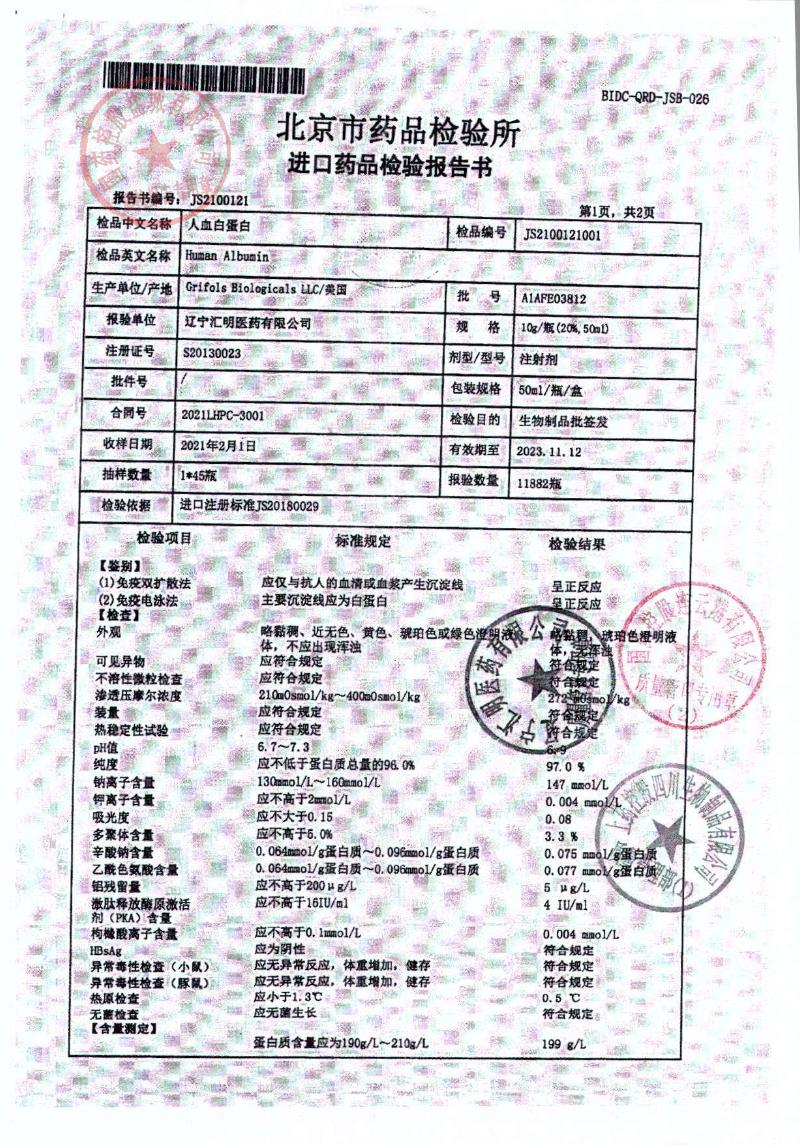 BIDC-QRD-JSB-026
北京市药品检验所
进口药品检验报告书
报告书编号: JS2100121
第1页, 共2页
检品中文名称 人血白蛋白 检品编号 JS2100121001
检品英文名称 Human Albumin
生产单位/产地 Grifols Biologicals LLC/美国 批 号 A1AFE03812
报验单位 辽宁汇明医药有限公司 规 格 10g/瓶(20%,50ml)
注册证号 S20130023 剂型/型号 注射剂
批件号 / 包装规格 50ml/瓶/盒
合同号 2021LHPC-3001 检验目的 生物制品批签发
收样日期 2021年2月1日 有效期至 2023.11.12
抽样数量 1*45瓶 报验数量 11882瓶
检验依据 进口注册标准JS20180029
检验项目 标准规定 检验结果
【鉴别】
(1)免疫双扩散法 应仅与抗人的血清或血浆产生沉淀线 呈正反应
(2)免疫电泳法 主要沉淀线应为白蛋白 呈正反应
【检查】
外观 略黏稠、近无色、黄色、琥珀色或绿色澄明液 略黏稠, 琥珀色澄明液
体, 不应出现浑浊 体, 无浑浊
可见异物 应符合规定 符合规定
不溶性微粒检查 应符合规定 符合规定
渗透压摩尔浓度 210mOsmol/kg~400mOsmol/kg 272 mOsmol/kg
装量 应符合规定 符合规定
热稳定性试验 应符合规定 符合规定
pH值 6.7~7.3 6.9
纯度 应不低于蛋白质总量的96.0% 97.0 %
钠离子含量 130mmol/L~160mmol/L 147 mmol/L
钾离子含量 应不高于2mmol/L 0.004 mmol/L
吸光度 应不大于0.15 0.08
多聚体含量 应不高于5.0% 3.3 %
辛酸钠含量 0.064mmol/g蛋白质~0.096mmol/g蛋白质 0.075 mmol/g蛋白质
乙酰色氨酸含量 0.064mmol/g蛋白质~0.096mmol/g蛋白质 0.077 mmol/g蛋白质
铝残留量 应不高于200μg/L 5 μg/L
激肽释放酶原激活 应不高于16IU/ml 4 IU/ml
剂（PKA）含量
枸橼酸离子含量 应不高于0.1mmol/L 0.004 mmol/L
HBsAg 应为阴性 符合规定
异常毒性检查（小鼠） 应无异常反应, 体重增加, 健存 符合规定
异常毒性检查（豚鼠） 应无异常反应, 体重增加, 健存 符合规定
热原检查 应小于1.3℃ 0.5 ℃
无菌检查 应无菌生长 符合规定
【含量测定】
蛋白质含量应为190g/L~210g/L 199 g/L
辽宁汇明医药有限公司